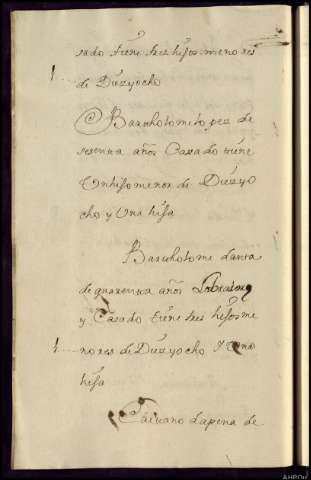 sado tiene tres hijos menores
1 de Diezyocho
Bartholome lopez de
sesenta años Casado tiene
Un hijo menor de Diezyo
cho y Una hija
Bartholome
de quarenta años Labrador
y Casado tiene tres hijos me
1 nores de Diezyocho y Una
hija
Caietano Lapena de
AHPCU